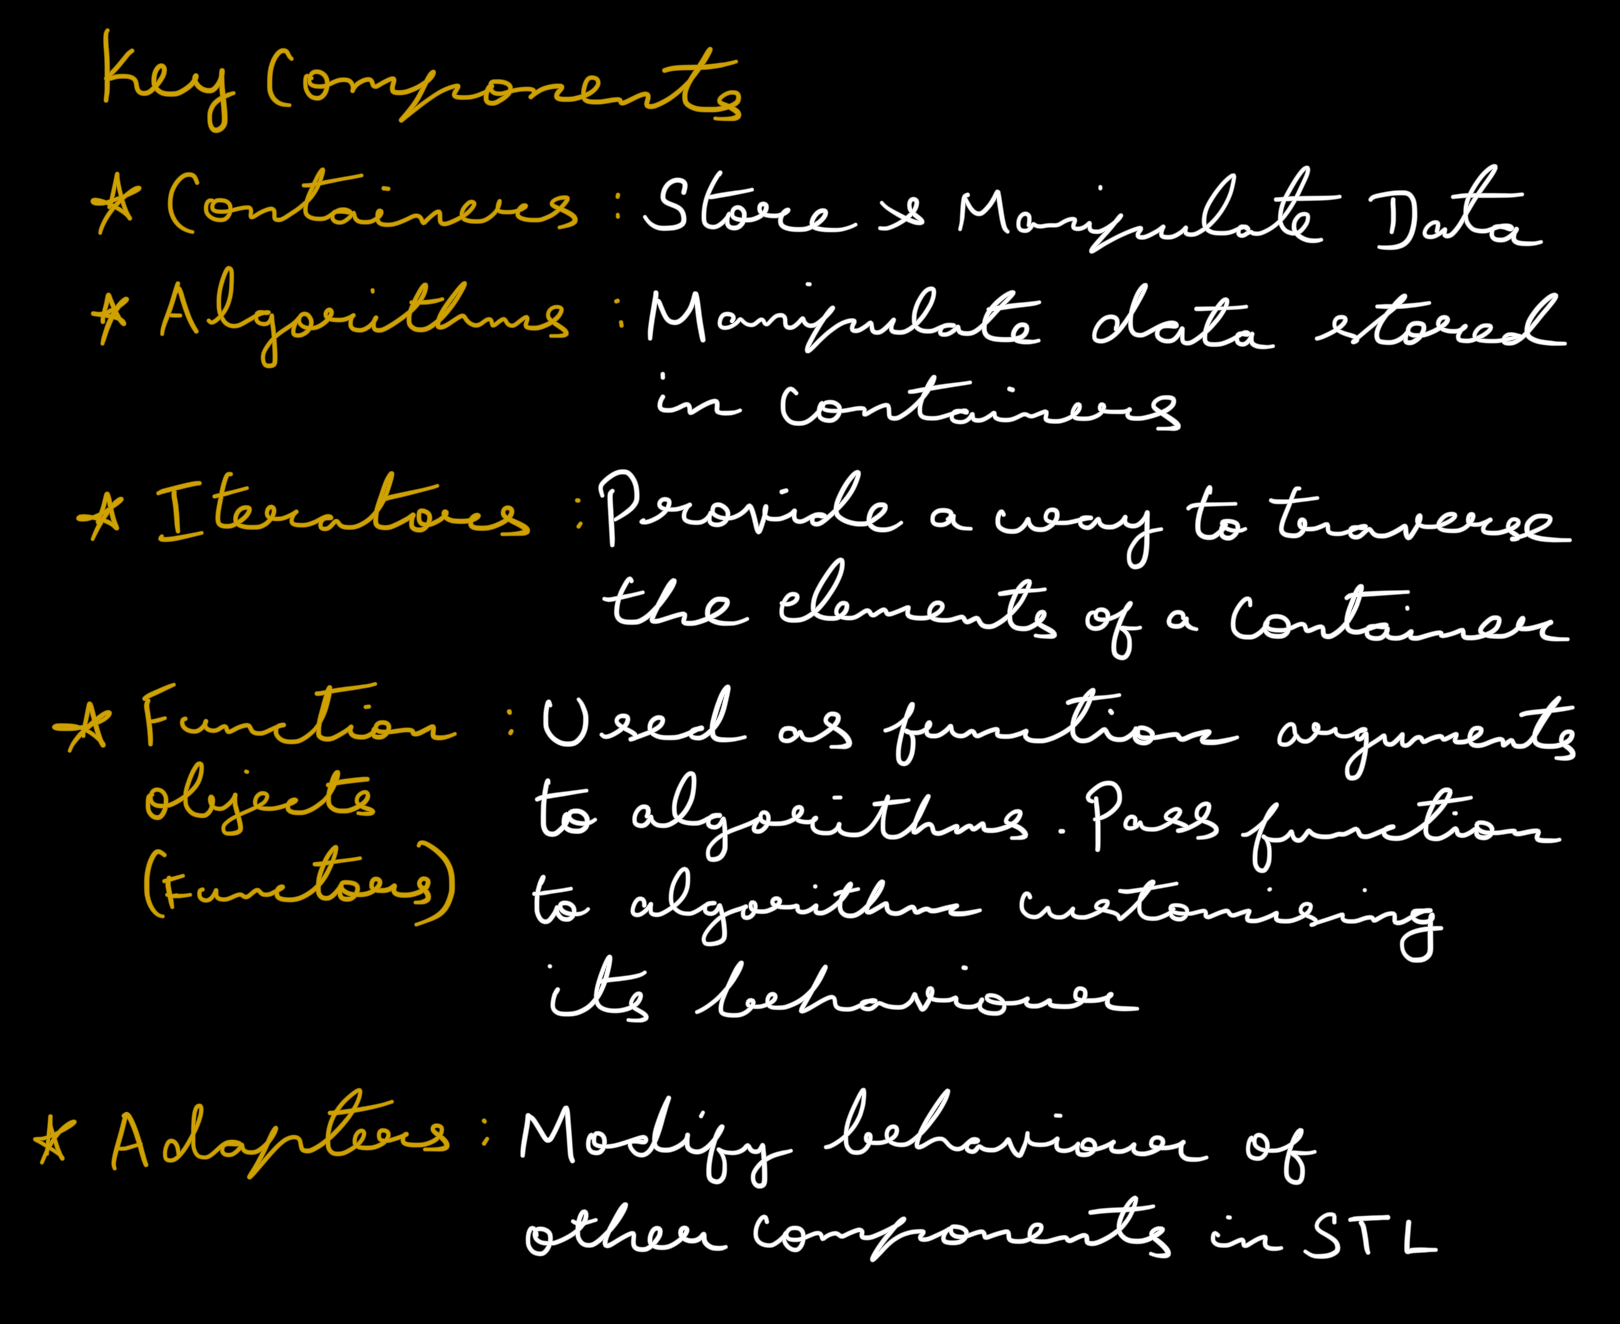 Key Components
* Containers : Store & Manipulate Data
* Algorithms : Manipulate data stored
in containers
* Iterators : Provide a way to traverse
the elements of a container
* Function : Used as function arguments
objects to algorithms. Pass function
(Functors) to algorithm customising
its behaviour
* Adapters : Modify behaviour of
other components in STL